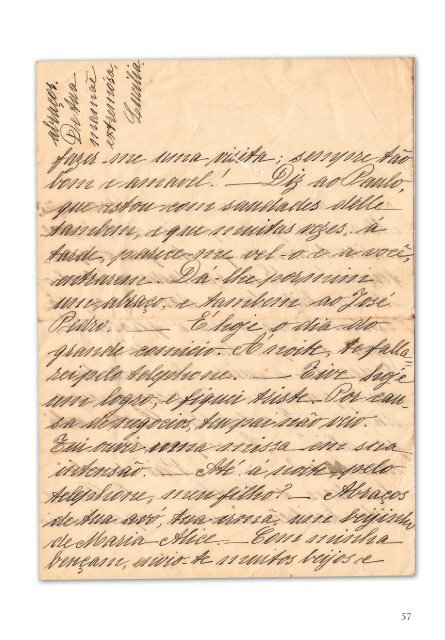 fazer-me uma visita; sempre tão
bom e amavel! — Diz ao Paulo
que estou com saudades delle
tambem, e que muitas vezes, á
tarde, parece-me vel-o e a você,
entrarem. Dá-lhe por mim
um abraço, e tambem ao José
Pedro. — É hoje o dia do
grande comicio. Á noite, te falla-
rei pelo telephone. — Tive hoje
um logro, e fiquei triste. Por cau-
sa de negocios, teu pai não vio.
Fui ouvir uma missa em sua
intensão. — Até á noite, pelo
telephone, meu filho? — Abraços
de tua avó, tua irmã, um beijinho
de Maria Alice. — Com minha
bençam, envio-te muitos beijos e
abraços.
De tua
mamãe
extremosa,
Lucilia
57